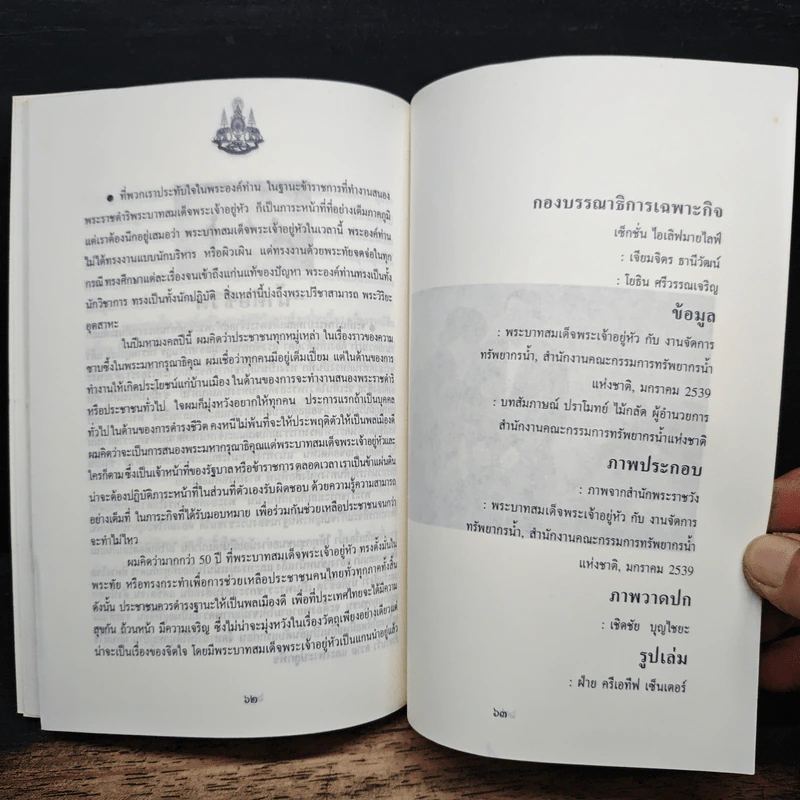 ● ที่พวกเราประทับใจในพระองค์ท่าน ในฐานะข้าราชการที่ทำงานสนอง
พระราชดำริพระบาทสมเด็จพระเจ้าอยู่หัว ก็เป็นภาระหน้าที่ที่อย่างเต็มภาคภูมิ
แต่เราต้องนึกอยู่เสมอว่า พระบาทสมเด็จพระเจ้าอยู่หัวในเวลานี้ พระองค์ท่าน
ไม่ได้ทรงงานแบบนักบริหาร หรือผิวเผิน แต่ทรงงานด้วยพระทัยจดจ่อในทุก
กรณีทรงศึกษาแต่ละเรื่องจนเข้าถึงแก่นแท้ของปัญหา พระองค์ท่านทรงเป็นทั้ง
นักวิชาการ ทรงเป็นทั้งนักปฏิบัติ สิ่งเหล่านี้บ่งถึงพระปรีชาสามารถ พระวิริยะ
อุตสาหะ
ในปีมหามงคลปีนี้ ผมคิดว่าประชาชนทุกหมู่เหล่า ในเรื่องราวของความ
ซาบซึ้งในพระมหากรุณาธิคุณ ผมเชื่อว่าทุกคนมีอยู่เต็มเปี่ยม แต่ในด้านของการ
ทำงานให้เกิดประโยชน์แก่บ้านเมือง ในด้านของการจะทำงานสนองพระราชดำริ
หรือประชาชนทั่วไป ใจผมก็มุ่งหวังอยากให้ทุกคน ประการแรกถ้าเป็นบุคคล
ทั่วไปในด้านของการดำรงชีวิต คงหนีไม่พ้นที่จะให้ประพฤติตัวให้เป็นพลเมืองดี
ผมคิดว่าจะเป็นการสนองพระมหากรุณาธิคุณแด่พระบาทสมเด็จพระเจ้าอยู่หัวและ
ใครก็ตาม ซึ่งเป็นเจ้าหน้าที่ของรัฐบาล หรือข้าราชการ ตลอดเวลาเราเป็นข้าแผ่นดิน
น่าจะต้องปฏิบัติภาระหน้าที่ในส่วนที่ตัวเองรับผิดชอบ ด้วยความรู้ความสามารถ
อย่างเต็มที่ ในภาระกิจที่ได้รับมอบหมาย เพื่อร่วมกันช่วยเหลือประชาชนจนกว่า
จะทำไม่ไหว
ผมคิดว่ามากกว่า 50 ปี ที่พระบาทสมเด็จพระเจ้าอยู่หัว ทรงตั้งมั่นใน
พระทัย หรือทรงกระทำเพื่อการช่วยเหลือประชาชนคนไทยทั่วทุกภาคทั้งสิ้น
ดังนั้น ประชาชนควรดำรงฐานะให้เป็นพลเมืองดี เพื่อที่ประเทศไทยจะได้มีความ
สุขกัน ถ้วนหน้า มีความเจริญ ซึ่งไม่น่าจะมุ่งหวังในเรื่องวัตถุเพียงอย่างเดียวแต่
น่าจะเป็นเรื่องของจิตใจ โดยมีพระบาทสมเด็จพระเจ้าอยู่หัวเป็นแกนนำอยู่แล้ว
๖๒
กองบรรณาธิการเฉพาะกิจ
เซ็กชั่น ไอเลิฟมายไลฟ์
: เจียมจิตร ธานีวัฒน์
: โยธิน ศรีวรรณเจริญ
ข้อมูล
: พระบาทสมเด็จพระเจ้าอยู่หัว กับ งานจัดการ
ทรัพยากรน้ำ, สำนักงานคณะกรรมการทรัพยากรน้ำ
แห่งชาติ, มกราคม 2539
: บทสัมภาษณ์ ปราโมทย์ ไม้กลัด ผู้อำนวยการ
สำนักงานคณะกรรมการทรัพยากรน้ำแห่งชาติ
ภาพประกอบ
: ภาพจากสำนักพระราชวัง
: พระบาทสมเด็จพระเจ้าอยู่หัว กับ งานจัดการ
ทรัพยากรน้ำ, สำนักงานคณะกรรมการทรัพยากรน้ำ
แห่งชาติ, มกราคม 2539
ภาพวาดปก
: เชิดชัย บุญไชยะ
รูปเล่ม
: ฝ่าย ครีเอทีฟ เซ็นเตอร์
๖๓